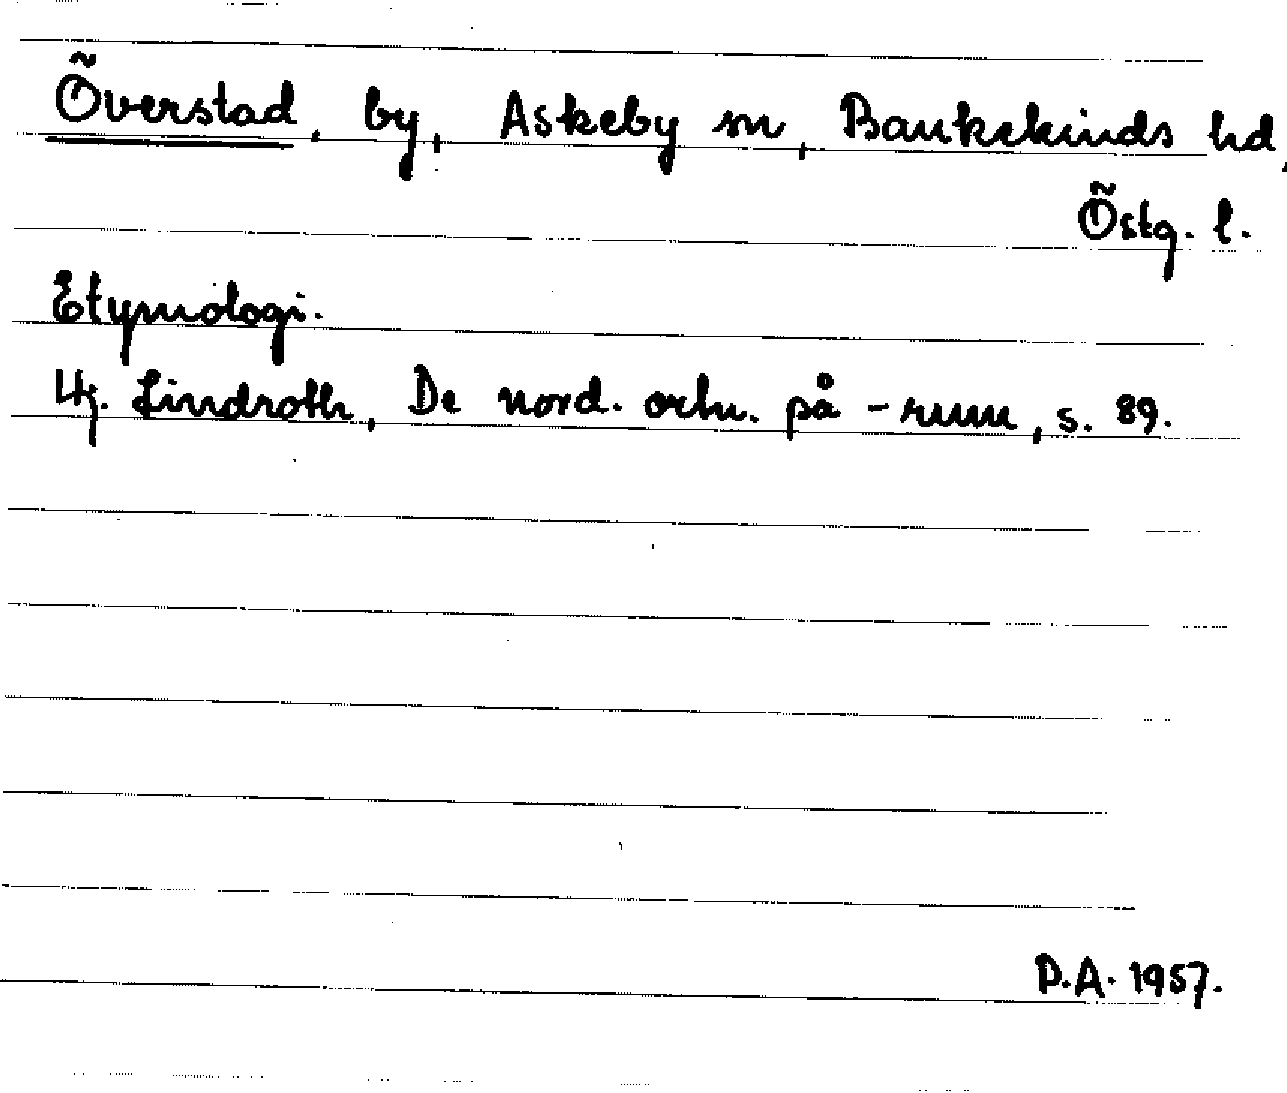 Överstad, by, Askeby sn, Bankekinds hd,
Östg. l.
Etymologi.
Hj. Lindroth, De nord. ortn. på -rum, s. 89.
D.A. 1957.